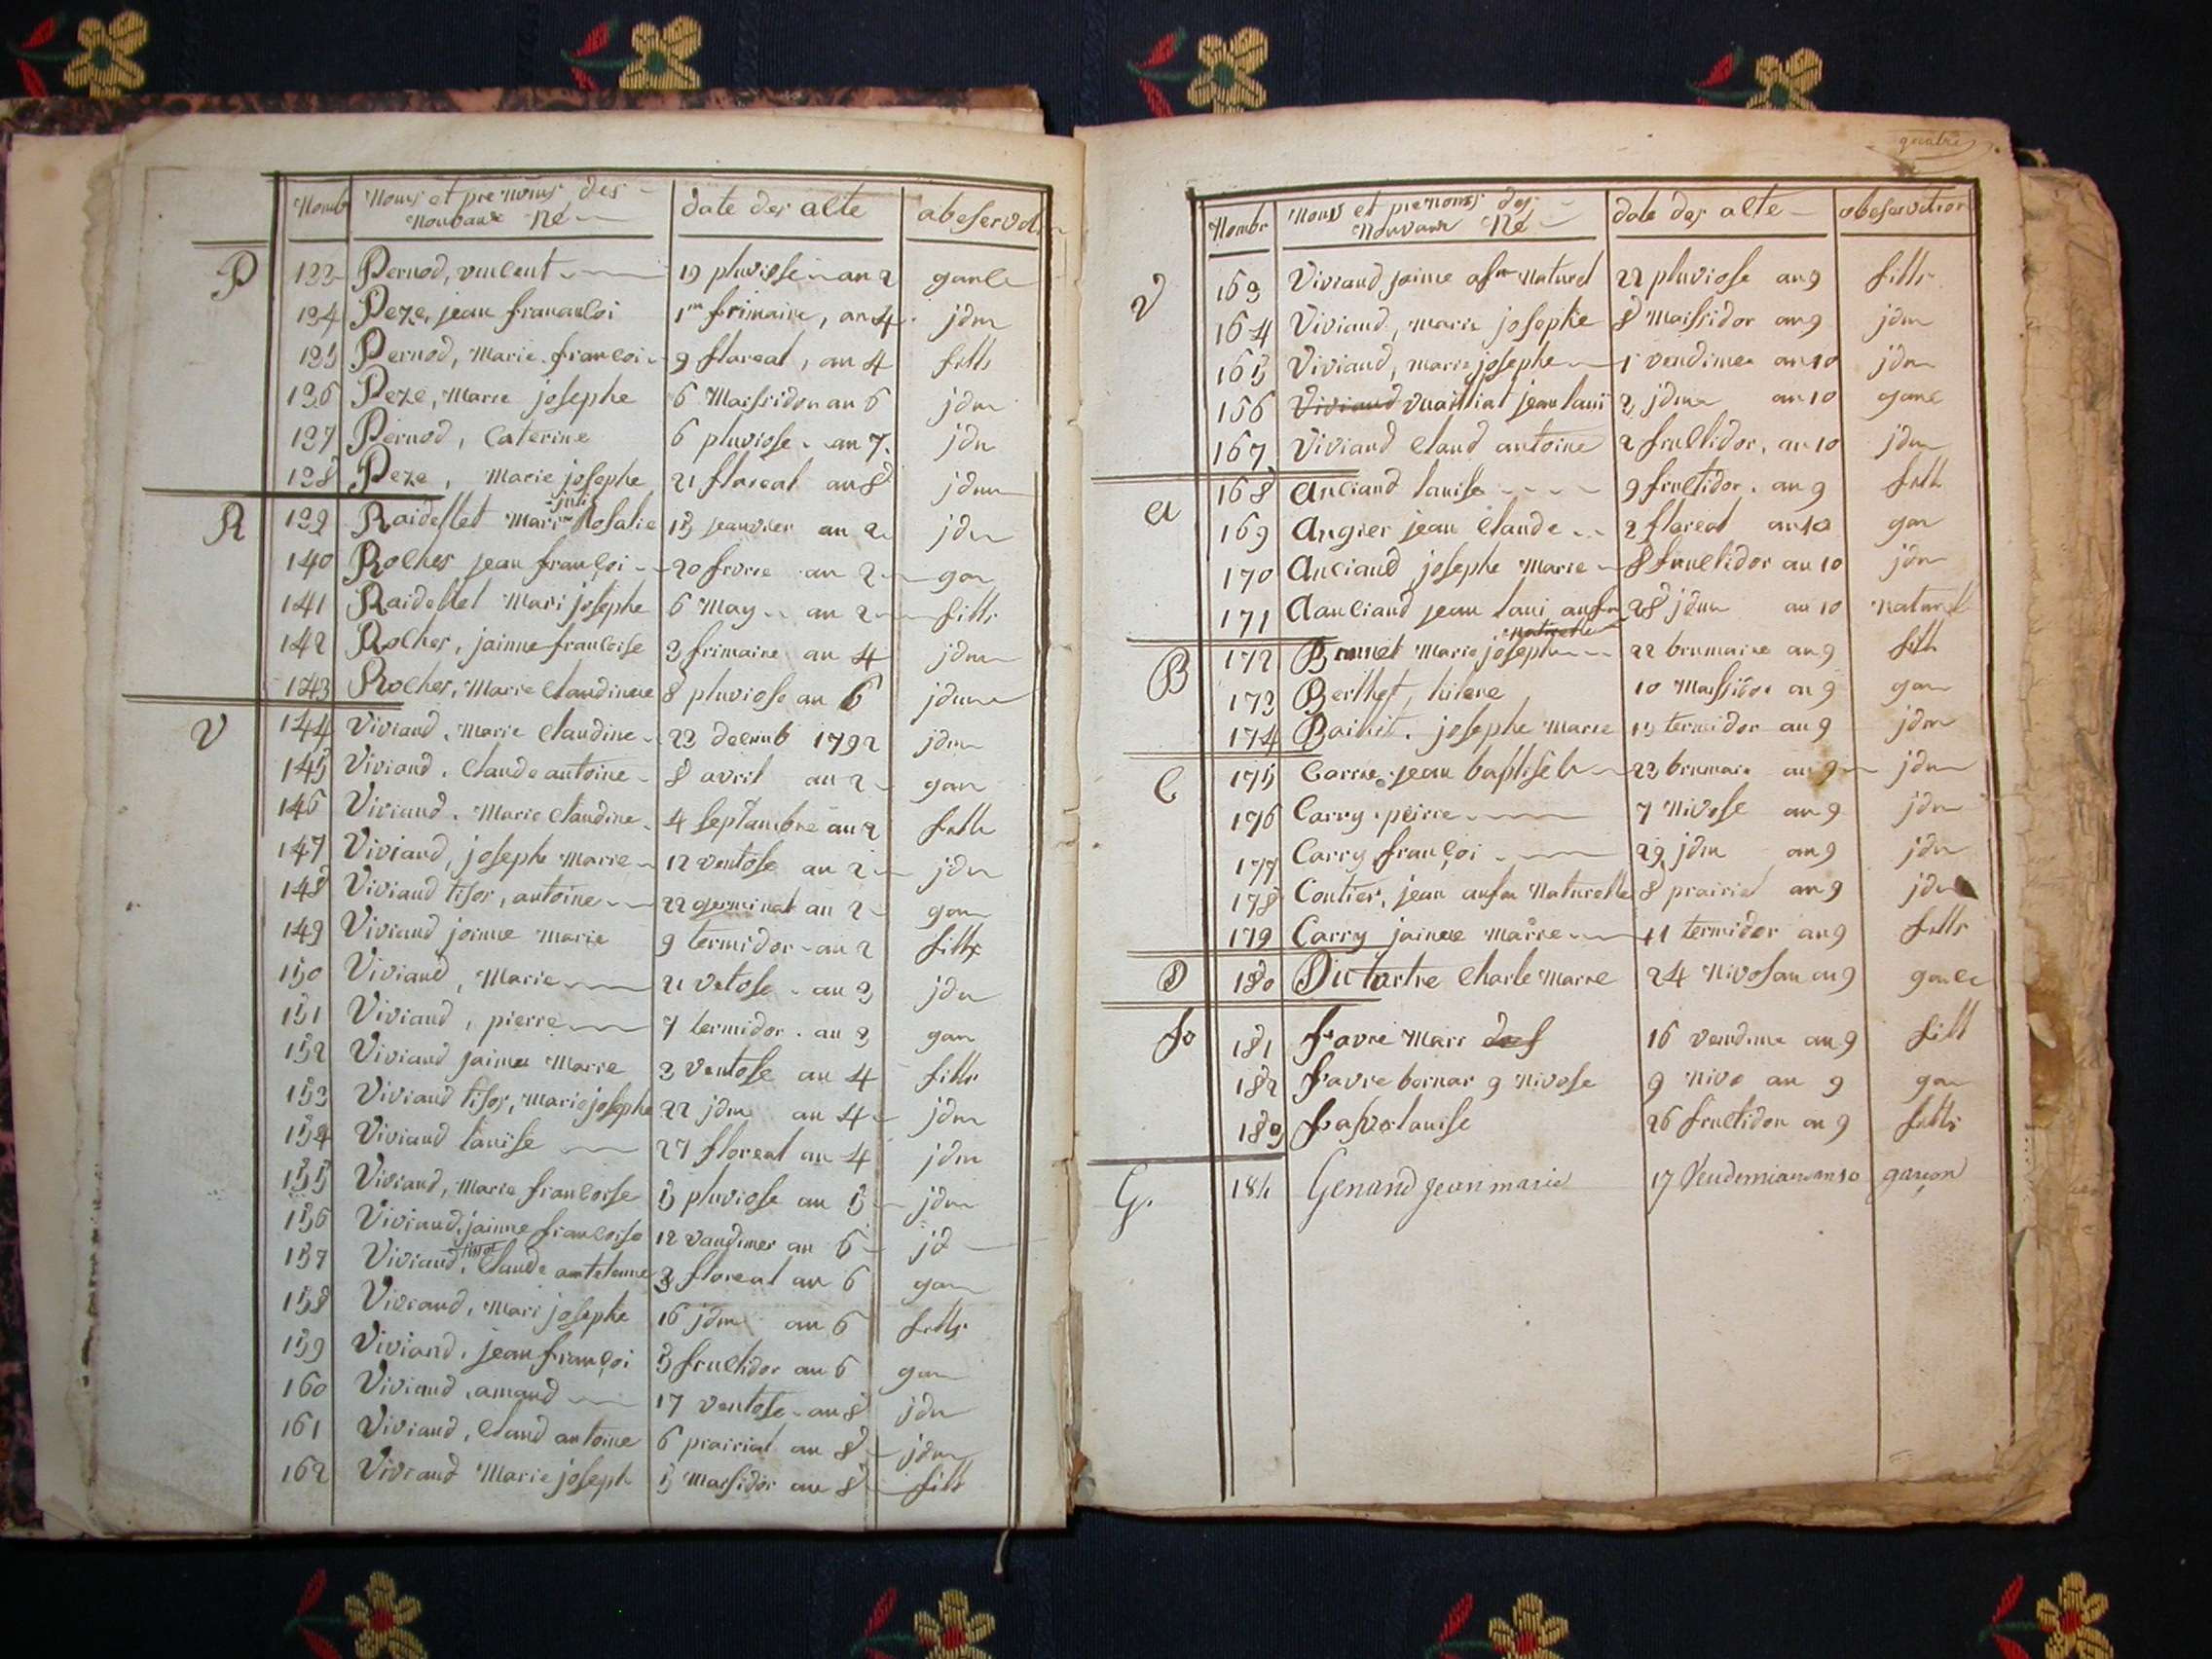 Nomb Noms et prenoms des date des acte observat
Nouvaux Né
P
133 Pernod, vincent 19 pluviose an 2 garce
134 Peze, jean francoi 1er frimaire, an 4 jdm
135 Pernod, Marie francoi 9 floreal, an 4 fills
136 Peze, Marie josephe 6 Maissidor an 6 jdm
137 Pernod, Caterine 6 pluviose an 7 jdm
138 Peze, Marie josephe 21 floreal an 8 jdm
R
139 Raidellet Marie Rosalie 15 jeanvier an 2 jdm
140 Rocher jean françoi 20 an 2 gar
141 Raidellet Mari josephe 6 May an 2 fills
142 Rocher, jainne francoise 3 frimaire an 4 jdm
143 Rocher, Marie Claudinne 8 pluviose an 6 jdm
V
144 Viviand, Marie Claudine 23 decemb 1792 jdm
145 Viviand, Claude antoine 8 avril an 2 gar
146 Viviand, Marie Claudine 4 Septambre an 2 fills
147 Viviand, josephe Marie 12 ventose an 2 jdm
148 Viviand tisor, antoine 22 germinal an 2 gar
149 Viviand jeinne Marie 9 termidor an 2 fills
150 Viviand, Marie 21 vetose an 3 jdm
151 Viviand, pierre 7 termidor an 3 gar
152 Viviand Marie 3 Ventose an 4 fills
153 Viviand tisor, Marie josephe 22 jdm an 4 jdm
154 Viviand Lauise 27 floreal an 4 jdm
155 Viviand, Marie francoise 5 pluviose an 5 jdm
156 Viviand, jainne francoise 12 vandmer an 6 jd
157 Viviand, tissot Claude 3 floreal an 6 gar
158 Viviand, Mari josephe 16 jdm an 6 fills
159 Viviand, jean françoi 5 fructidor an 6 gar
160 Viviand, amand 17 ventose an 8 jdm
161 Viviand, Claud antoine 6 prairial an 8 jdm
162 Viviand Marie joseph 5 Massidor an 8 fill
quatre
Nombr Noms et prenoms des date des acte observation
Nouvaux Né
V
163 Viviand jaime naturel 22 pluviose an 9 fills
164 Viviand, Marie josephe 8 Maissidor an 9 jdm
165 Viviand, marie josephe 1 vendimea an 10 jdm
166 Viviand vuailliat jean laui 2 jdm an 10 garc
167 Viviand Claud antoine 2 fructidor, an 10 jdm
A
168 Anciand lauise 9 fructidor, an 9 fill
169 Angier jean Claude 2 floreal an 10 gar
170 Anciand josephe Marie 8 fructidor an 10 jdm
171 Aanciand jean laui anfen 28 jdm an 10 naturel
naturelle
B
172 Brunet Marie josephe 22 brumaire an 9 fill
173 Berthet, hilere 10 Massidor an 9 gar
174 Josephe Marie 15 termidor an 9 jdm
C
175 Carrie jean baptiste 23 brumaire an 9 jdm
176 Carry peirre 7 Nivose an 9 jdm
177 Carry françoi 29 jdm an 9 jdm
178 Coutier, jean anfen Naturelle 8 prairial an 9 jdm
179 Carry jainne Marie 11 termidor an 9 fills
D
180 Dutartre Charle Marie 24 Nivosan an 9 garce
F
181 favre Mari 16 vendime an 9 fill
182 favre bernar 9 Nivose 9 Nivo an 9 gar
183 lauise 26 fructidor an 9 fills
G.
184 Genand Jean marie 17 Vendemiair an 10 garçon